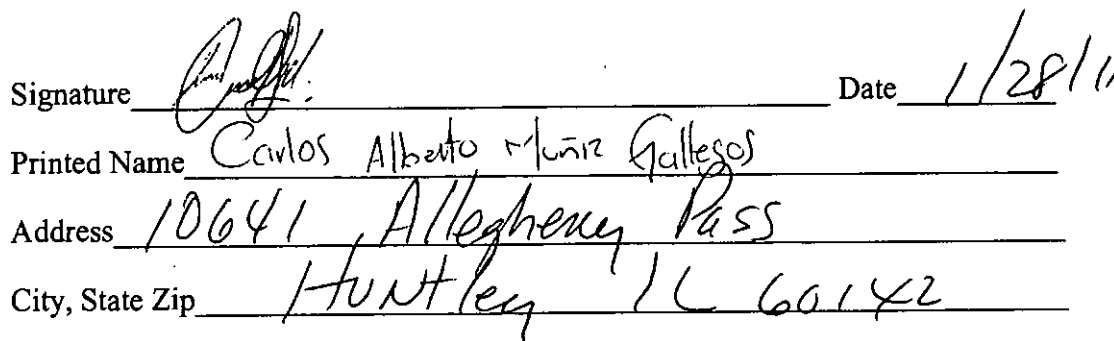 Signature Date 1/28/1
Printed Name Carlos Alberto Muñiz Gallegos
Address 10641 Allegheny Pass
City, State Zip Huntley IL 60142